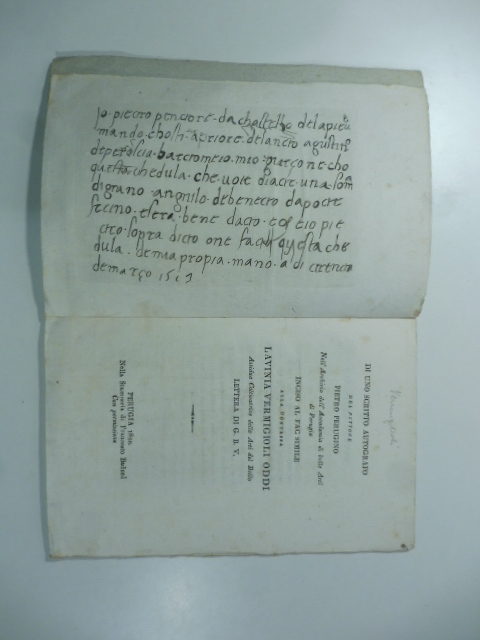 Io. pietro penctore. da chastello delapieu
mando. chosti. apriore. de santo agustino
de bartromeio. mio. garçone. cho
questa chedula. che voie diate. una som
di grano. a de benetto da pocie
sera. bene dato. e io pie
tro. sopra dicto one facta questa che
dula. de mia propia. mano. a di
de março 15
Vermiglioli
DI UNO SCRITTO AUTOGRAFO
DEL PITTORE
PIETRO PERUGINO
Nell' Archivio dell' Accademia di belle Arti
di Perugia
INCISO AL FAC SIMILE
ALLA CONTESSA
LAVINIA VERMIGLIOLI ODDI
Assidua Coltivatrice delle Arti del Bello
LETTERA DI G. B. V.
PERUGIA 1820
Nella Stamperia di Francesco Baduel
Con permissione